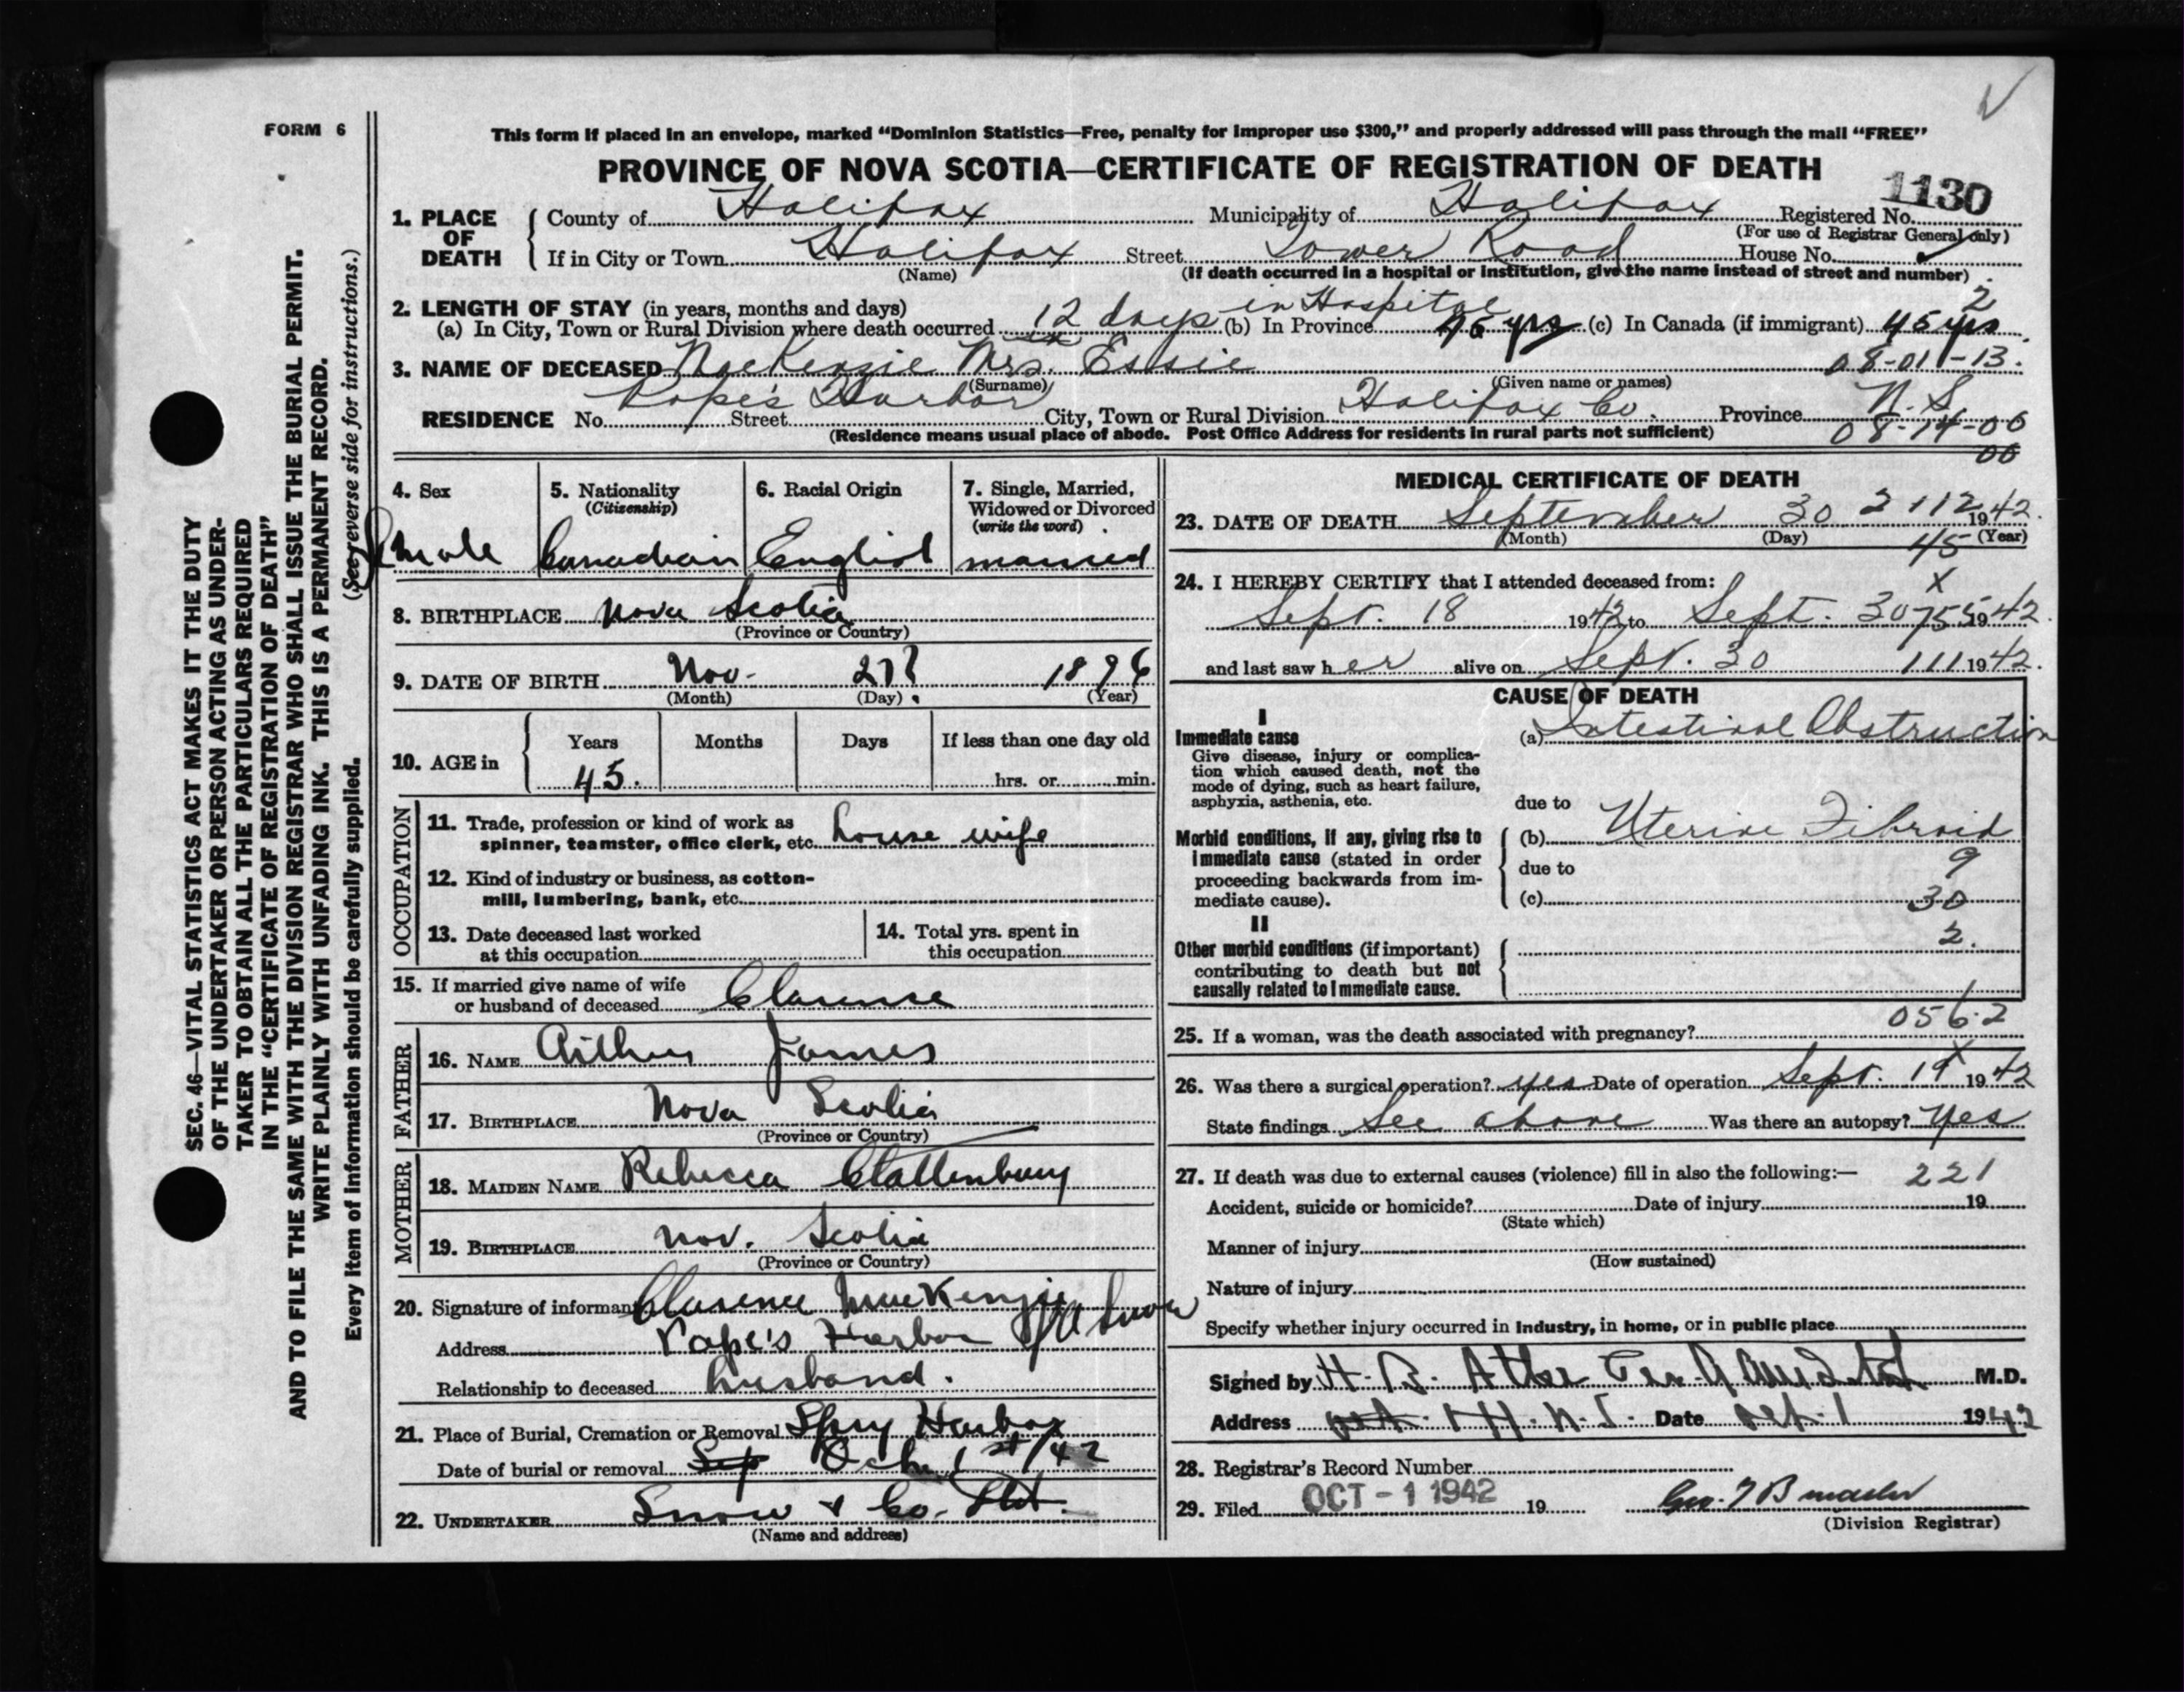 FORM 6
This form if placed in an envelope, marked “Dominion Statistics—Free, penalty for improper use $300,” and properly addressed will pass through the mail “FREE”
PROVINCE OF NOVA SCOTIA—CERTIFICATE OF REGISTRATION OF DEATH
1130
1. PLACE OF DEATH
County of Halifax Municipality of Halifax Registered No.
(For use of Registrar General only)
If in City or Town Halifax Street Tower Road House No.
(Name) (If death occurred in a hospital or institution, give the name instead of street and number)
2. LENGTH OF STAY (in years, months and days) in Hospital 2
(a) In City, Town or Rural Division where death occurred 12 days (b) In Province 45 yrs (c) In Canada (if immigrant) 45 yrs
3. NAME OF DECEASED MacKenzie Mrs. Essie 08-01-13.
(Surname) (Given name or names)
RESIDENCE No. Street Pope's Harbor City, Town or Rural Division Halifax Co. Province N.S
(Residence means usual place of abode. Post Office Address for residents in rural parts not sufficient) 08-14-00
00
SEC. 46—VITAL STATISTICS ACT MAKES IT THE DUTY
OF THE UNDERTAKER OR PERSON ACTING AS UNDER-
TAKER TO OBTAIN ALL THE PARTICULARS REQUIRED
IN THE “CERTIFICATE OF REGISTRATION OF DEATH”
AND TO FILE THE SAME WITH THE DIVISION REGISTRAR WHO SHALL ISSUE THE BURIAL PERMIT.
WRITE PLAINLY WITH UNFADING INK. THIS IS A PERMANENT RECORD.
Every item of information should be carefully supplied. (See reverse side for instructions.)
4. Sex female
5. Nationality (Citizenship) Canadian
6. Racial Origin English
7. Single, Married, Widowed or Divorced (write the word) married
8. BIRTHPLACE Nova Scotia
(Province or Country)
9. DATE OF BIRTH Nov. 27? 1896
(Month) (Day) (Year)
10. AGE in Years 45. Months Days If less than one day old
hrs. or min.
OCCUPATION
11. Trade, profession or kind of work as
spinner, teamster, office clerk, etc. house wife
12. Kind of industry or business, as cotton-
mill, lumbering, bank, etc.
13. Date deceased last worked
at this occupation
14. Total yrs. spent in
this occupation
15. If married give name of wife
or husband of deceased Clarence
FATHER
16. NAME Arthur James
17. BIRTHPLACE Nova Scotia
(Province or Country)
MOTHER
18. MAIDEN NAME Rebecca Clattenburg
19. BIRTHPLACE Nov. Scotia
(Province or Country)
20. Signature of informant Clarence MacKenzie Snow
Address Pope's Harbor
Relationship to deceased husband.
21. Place of Burial, Cremation or Removal Spry Harbor
Date of burial or removal Sep Oct. 1st/42
22. UNDERTAKER Snow & Co. Ltd.
(Name and address)
MEDICAL CERTIFICATE OF DEATH
23. DATE OF DEATH September 30 2 112 1942.
(Month) (Day) (Year)
45
24. I HEREBY CERTIFY that I attended deceased from: X
Sept. 18 1942 to Sept. 30 755 1942.
and last saw her alive on Sept. 30 111 1942.
CAUSE OF DEATH
I
Immediate cause
Give disease, injury or complica-
tion which caused death, not the
mode of dying, such as heart failure,
asphyxia, asthenia, etc.
(a) Intestinal Obstruction
due to
Morbid conditions, if any, giving rise to
immediate cause (stated in order
proceeding backwards from im-
mediate cause).
(b) Uterine Fibroid
due to 9
(c) 30
II
Other morbid conditions (if important)
contributing to death but not
causally related to immediate cause.
2.
25. If a woman, was the death associated with pregnancy? 056.2
26. Was there a surgical operation? yes Date of operation Sept. 19 1942
State findings See above Was there an autopsy? Yes
27. If death was due to external causes (violence) fill in also the following:— 221
Accident, suicide or homicide? Date of injury 19
(State which)
Manner of injury
(How sustained)
Nature of injury
Specify whether injury occurred in industry, in home, or in public place
Signed by H. B. M.D.
Address Date Oct. 1 1942
28. Registrar's Record Number
29. Filed OCT - 1 1942 19
(Division Registrar)